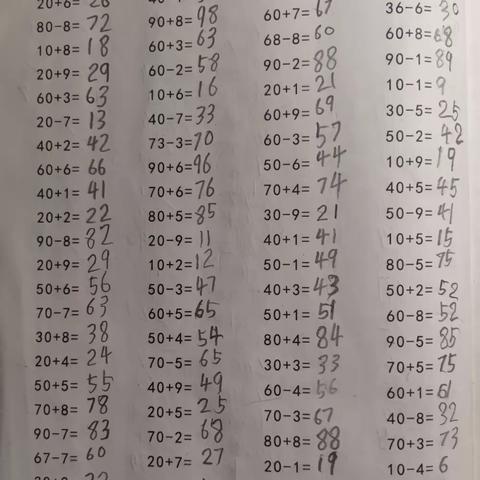 20+6=26
80-8=72
10+8=18
20+9=29
60+3=63
20-7=13
40+2=42
60+6=66
40+1=41
20+2=22
90-8=82
20+9=29
50+6=56
70-7=63
30+8=38
20+4=24
50+5=55
70+8=78
90-7=83
67-7=60
90+8=98
60+3=63
60-2=58
10+6=16
40-7=33
73-3=70
90+6=96
70+6=76
80+5=85
20-9=11
10+2=12
50-3=47
60+5=65
50+4=54
70-5=65
40+9=49
20+5=25
70-2=68
20+7=27
60+7=67
68-8=60
90-2=88
20+1=21
60+9=69
60-3=57
50-6=44
70+4=74
30-9=21
40+1=41
50-1=49
40+3=43
50+1=51
80+4=84
30+3=33
60-4=56
70-3=67
80+8=88
20-1=19
36-6=30
60+8=68
90-1=89
10-1=9
30-5=25
50-2=42
10+9=19
40+5=45
50-9=41
10+5=15
80-5=75
50+2=52
60-8=52
90-5=85
70+5=75
60+1=61
40-8=32
70+3=73
10-4=6